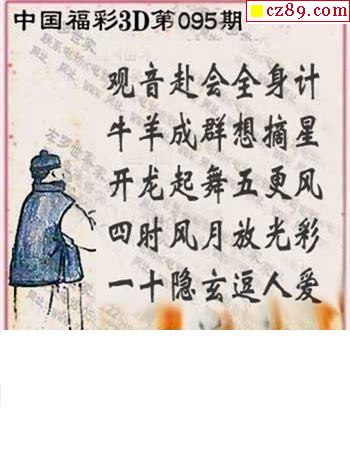 cz89.com
中国福彩3D第095期
观音赴会全身计
牛羊成群想摘星
开龙起舞五更风
四时风月放光彩
一十隐玄逗人爱